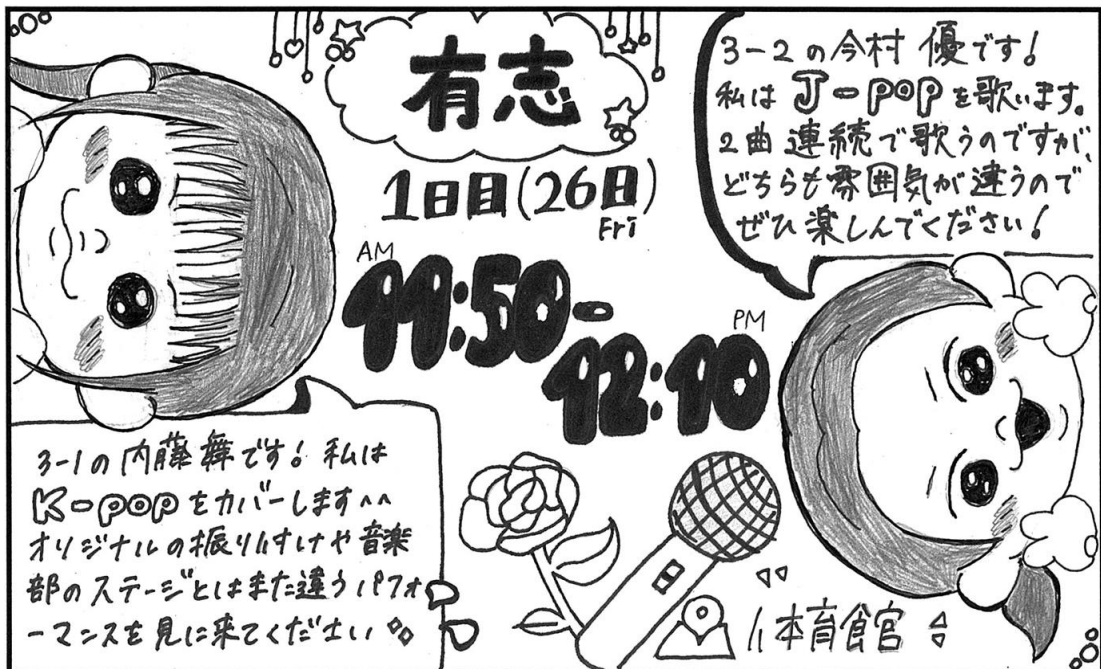 有志
1日目(26日)
Fri
AM
11:50-
PM
12:10
3-2の今村 優です!
私は J-POP を歌います。
2曲連続で歌うのですが、
どちらも雰囲気が違うので
ぜひ楽しんでください!
3-1の内藤舞です! 私は
K-POPをカバーします^^
オリジナルの振り付けや音楽
部のステージとはまた違うパフォ
ーマンスを見に来てください
小体育館